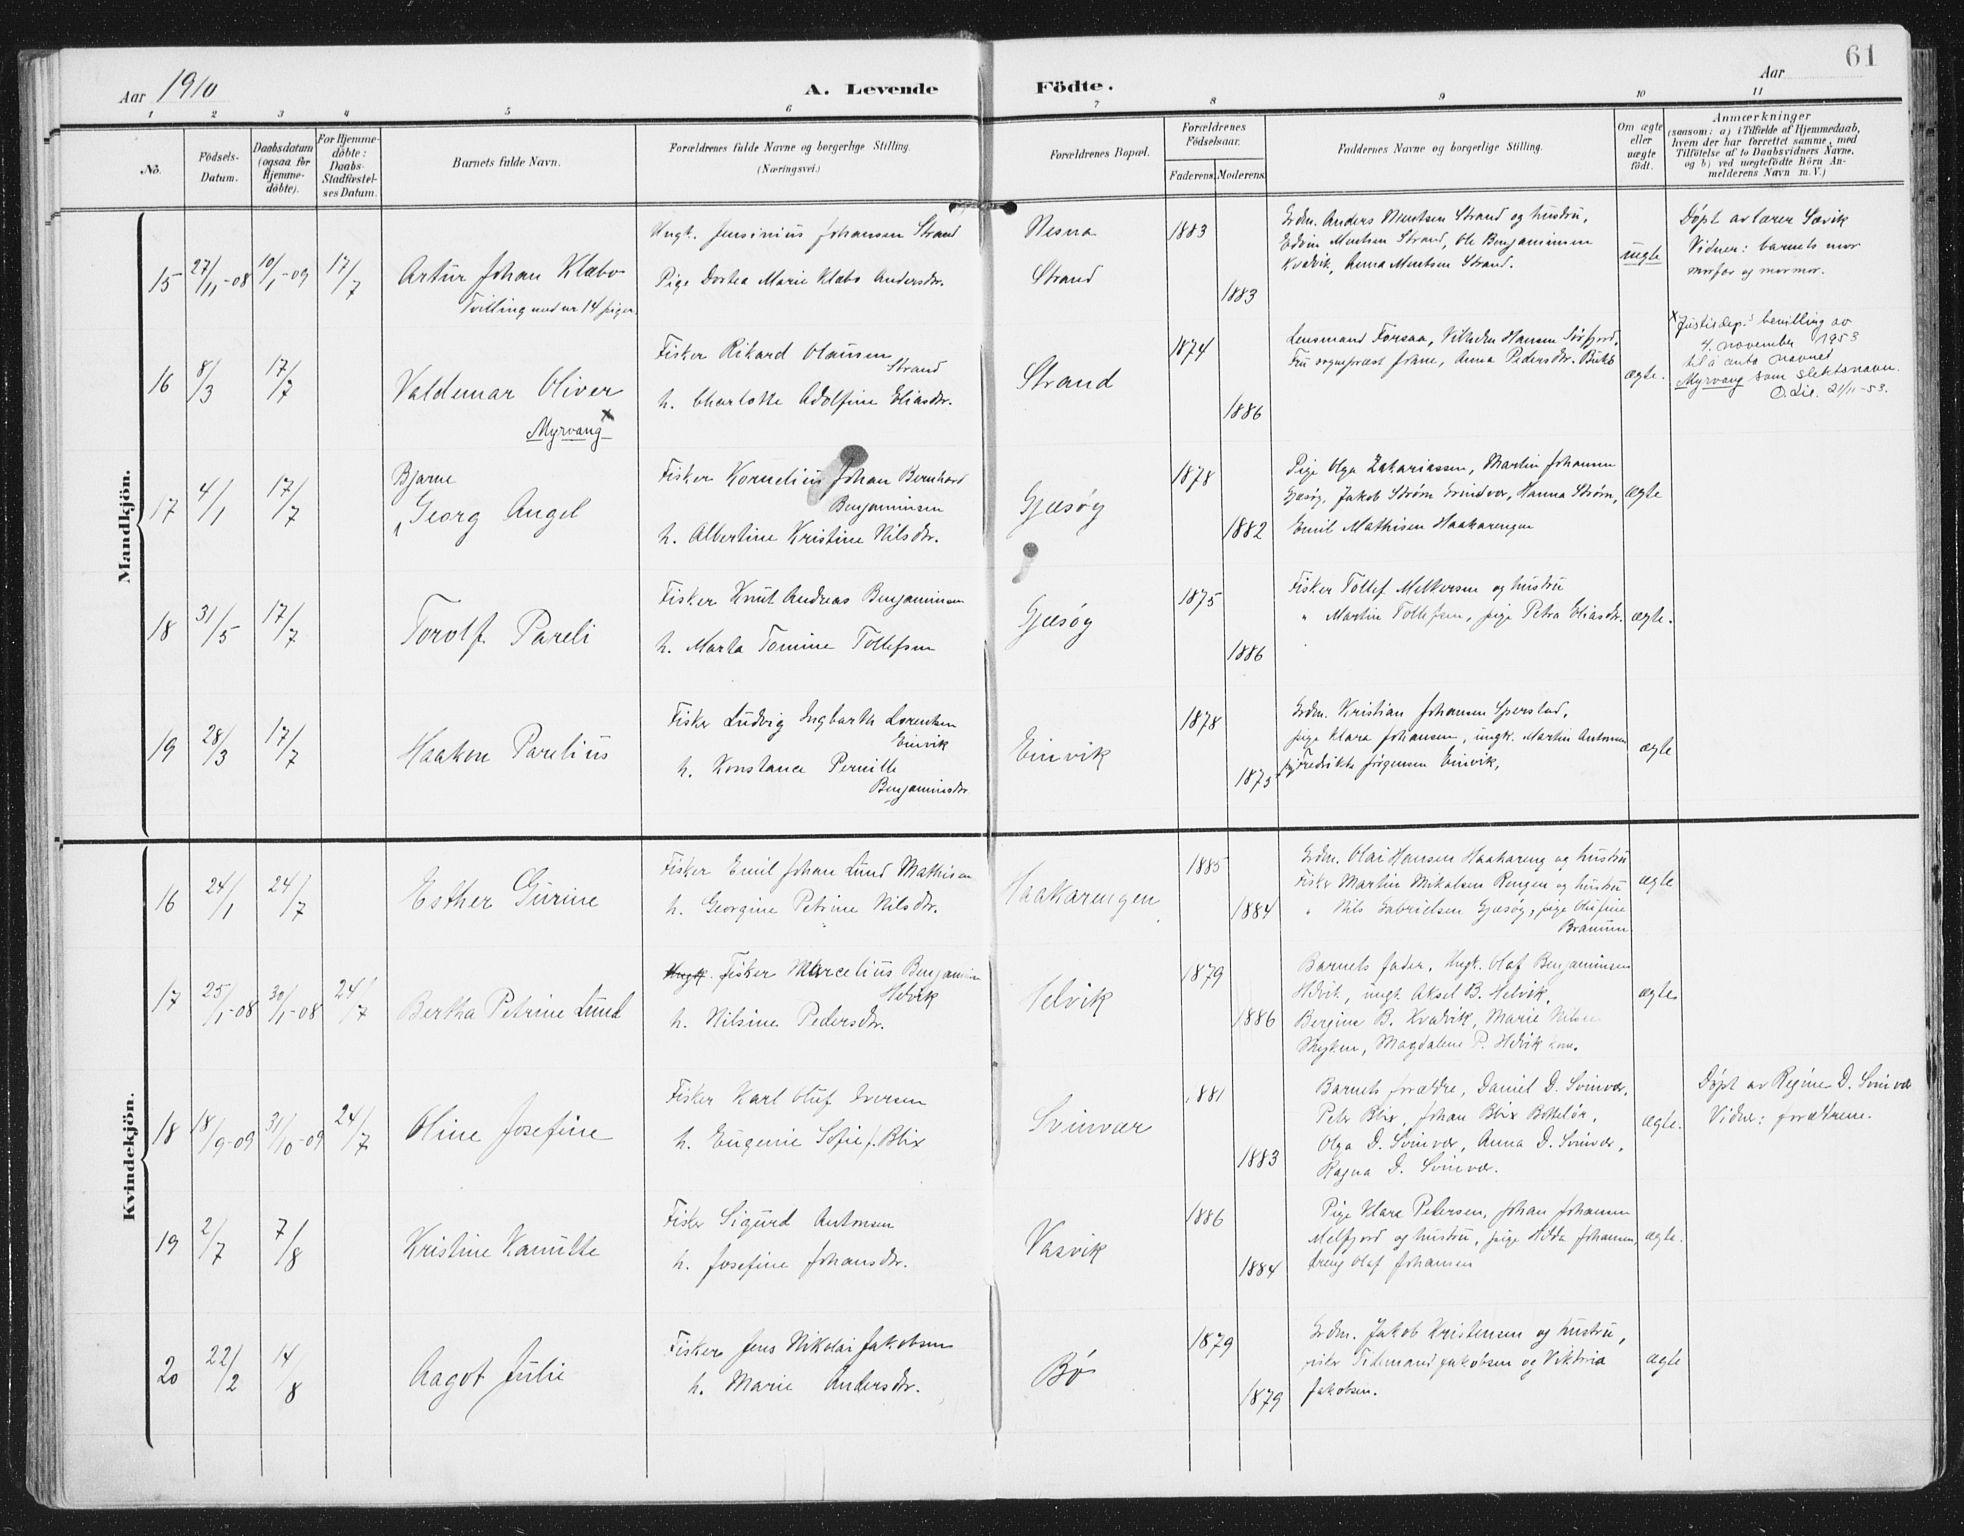 61
Aar 1910
A. Levende
Födte.
Aar
1 2 3 4 5 6 7 8 9 10 11
No.
Födsels-
Datum.
Daabsdatum
(ogsaa for
Hjemme-
döbte).
For Hjemme-
döbte:
Daabs-
Stadfæstel-
ses Datum.
Barnets fulde Navn.
Forældrenes fulde Navne og borgerlige Stilling.
(Næringsvei.)
Forældrenes Bopæl.
Forældrenes
Födselsaar.
Faderens. Moderens.
Faddernes Navne og borgerlige Stilling.
Om ægte
eller
uægte
födt.
Anmærkninger
(saasom: a) i Tilfælde af Hjemmedaab,
hvem der har forrettet samme, med
Tilföielse af to Daabsvidners Navne,
og b) ved uegtefödte Börn An-
melderens Navn m. V.)
Mandkjön.
15 27/11-08 10/1-09 17/7
Artur Johan Klæbo
Tvilling med nr 14 piger.
Ungk. Jensinius Johansen Strand
Pige Dortea Marie Klæbo Andersdtr.
Nesna
Strand
1883
1883
Grdm. Anders Mentsen Strand og hustru,
Edvin Mentsen Strand, Ole Benjaminsen
Kvalvik, Anna Mentsen Strand.
uægte
Døpt av lærer Sævik
Vidner: barnets mor
morfar og mormor.
16 8/3 17/7
Valdemar Oliver
Myrvang x
Fisker Rikard Olausen
Strand
h. Charlotte Adolfine Eliasdtr.
Strand
1874
1886
Lensmand Forsaa, Vilhelm Hansen Sørfjord,
Fru sogneprest Friane, Anna Pedersdtr.
ægte.
x Justisdep.s bevilling av
4. november 1953
til å anta navnet
Myrvang som slektsnavn.
21/11-53.
17 4/1 17/7
Bjarne
Georg Angel
Fisker Kornelius Johan Bernhard
Benjaminsen
h. Albertine Kristine Nilsdtr.
Gjæsøy
1878
1882
Pige Olga Zakariassen, Martin Johansen
Gjæsøy, Jakob Strøm Grindvær, Hanna Strøm,
Emil Mathisen Haakarengen
ægte
18 31/5 17/7
Torolf Pareli
Fisker Knut Andreas Benjaminsen
h. Marta Tomine Tollefsen
Gjæsøy
1875
1886
Fisker Tollef Melkersen og hustru
" Martin Tollefsen, pige Petra Eliasdtr.
ægte.
19 28/3 17/7
Haakon Parelius
Fisker Ludvig Ingbarth Lorentsen
Einvik
h. Konstance Pernille
Benjaminsdtr
Einvik
1878
1875
Grdm. Kristian Johansen Sperstad,
pige Klara Johansen, ungk. Martin Antonsen
Fredrikke Jørgensen Einvik,
ægte
Kvindekjön.
16 24/1 24/7
Esther Gurine
Fisker Emil Johan Lund Mathisen
h. Georgine Petrine Nilsdtr.
Haakarengen
1885
1884
Grdm. Olai Hansen Haakareng og hustru
Fisker Martin Mikalsen Rengen og hustru
" Nils Gabrielsen Gjæsøy, pige Olufine
Branum
ægte
17 25/1-08 30/1-08 24/7
Bertha Petrine Lund
Ungk. Fisker Marcelius Benjaminsen
Helvik
h. Nilsine Pedersdtr.
Helvik
1879
1886
Barnets fader, Ungk. Olaf Benjaminsen
Helvik, ungk. Aksel B. Helvik,
Bergine B. Kvalvik, Marie Nilsen
Myken, Magdalene P. Helvik
ægte
18 18/9-09 31/10-09 24/7
Oline Josefine
Fisker Karl Oluf Iversen
h. Eugenie Sofie f. Blix
Svinvær
1881
1883
Barnets forældre, Daniel D. Svinvær,
Peter Blix, Johan Blix Bolleløs,
Olga D. Svinvær, Anna D. Svinvær,
Ragna D. Svinvær.
ægte.
Døpt av Regine D. Svinvær
Vidner: forældrene.
19 2/7 7/8
Kristine Kamitte
Fisker Sigurd Antonsen
h. Josefine Johansdtr.
Vasvik
1886
1884
Pige Klara Petersen, Johan Johansen
Melfjord og hustru, pige Hilda Johansen,
dreng Olaf Johansen
ægte.
20 22/2 14/8
Aagot Julie
Fisker Jens Nikolai Jakobsen
h. Marie Andersdtr.
Bø
1879
1879
Grdm. Jakob Kristensen og hustru,
fisker Tidemand Jakobsen og Viktoria
Jakobsen.
ægte